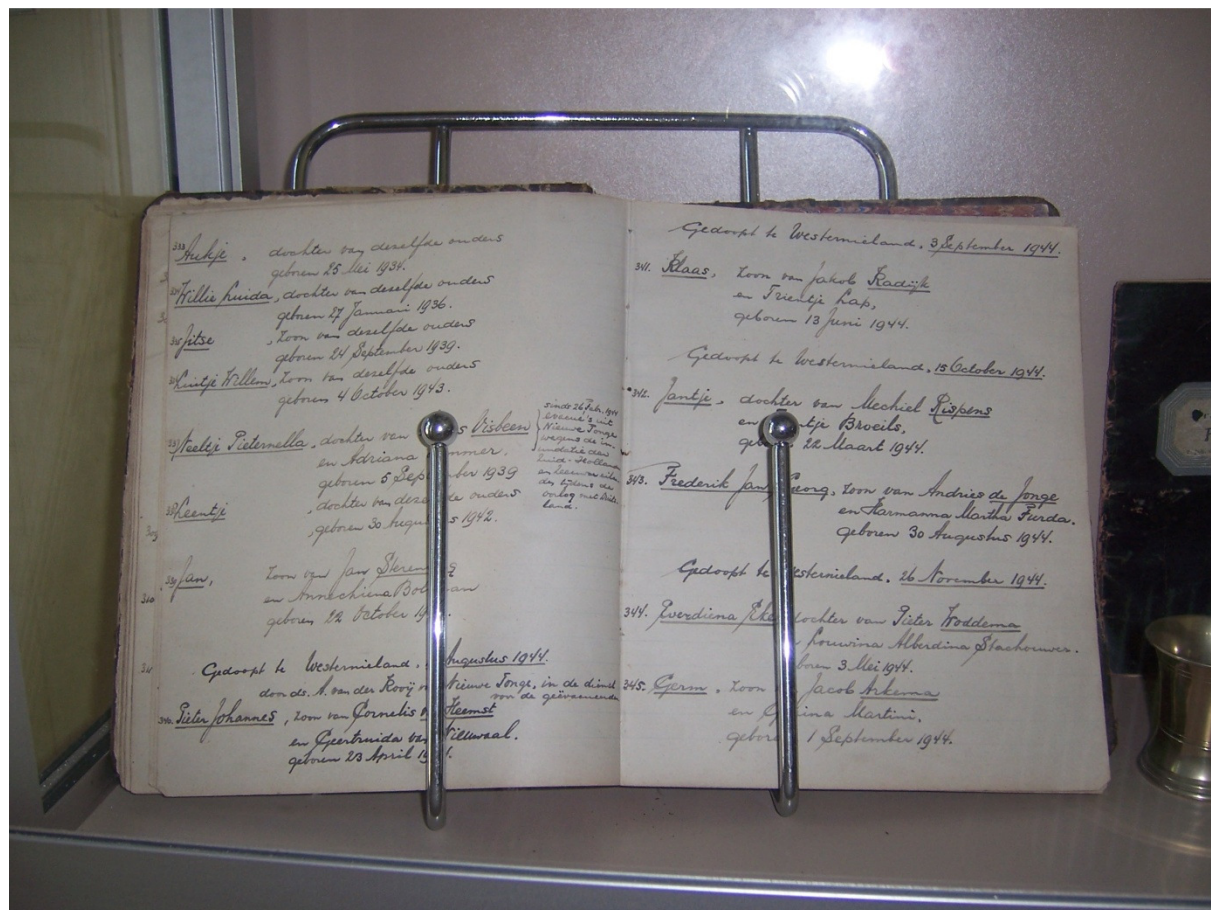 333 Aukje, dochter van dezelfde ouders
geboren 25 Mei 1934.
334 Willie Luida, dochter van dezelfde ouders
geboren 27 Januari 1936.
335 Jitse, zoon van dezelfde ouders
geboren 24 September 1939.
336 Luitje Willem, zoon van dezelfde ouders
geboren 4 October 1943.
337 Neeltje Pieternella, dochter van Visbeen
en Adriana
geboren 5 September 1939
sinds 26 Feb. 1944
evacué's uit
Nieuwe Tonge
wegens de in-
undatie der
Zuid-Holland
en Zeeuwse eilan-
den tijdens de
oorlog met Duits-
land.
338 Leentje, dochter van dezelfde ouders
geboren 30 Augustus 1942.
339 Jan, zoon van Jan
en Annechiena
geboren 22 October
Gedoopt te Westernieland, Augustus 1944.
door ds. A. van der Kooij Nieuwe Tonge, in de dienst
van de geëvacueerden
340. Pieter Johannes, zoon van Cornelis Heemst
en Geertruida van
geboren 23 April
Gedoopt te Westernieland, 3 September 1944.
341. Klaas, zoon van Jakob Radijk
en Trientje Lap,
geboren 13 Juni 1944.
Gedoopt te Westernieland, 15 October 1944.
342. Jantje, dochter van Mechiel Rispens
en Broeils,
22 Maart 1944.
343. Frederik Jan Georg, zoon van Andries de Jonge
en Harmanna Martha Furda.
geboren 30 Augustus 1944.
Gedoopt te Westernieland, 26 November 1944.
344. Everdiena dochter van Pieter Woddema
Louwina Alberdina Stachouwer.
geboren 3 Mei 1944.
345. Germ, zoon Jacob Arkema
en Martini.
geboren 1 September 1944.